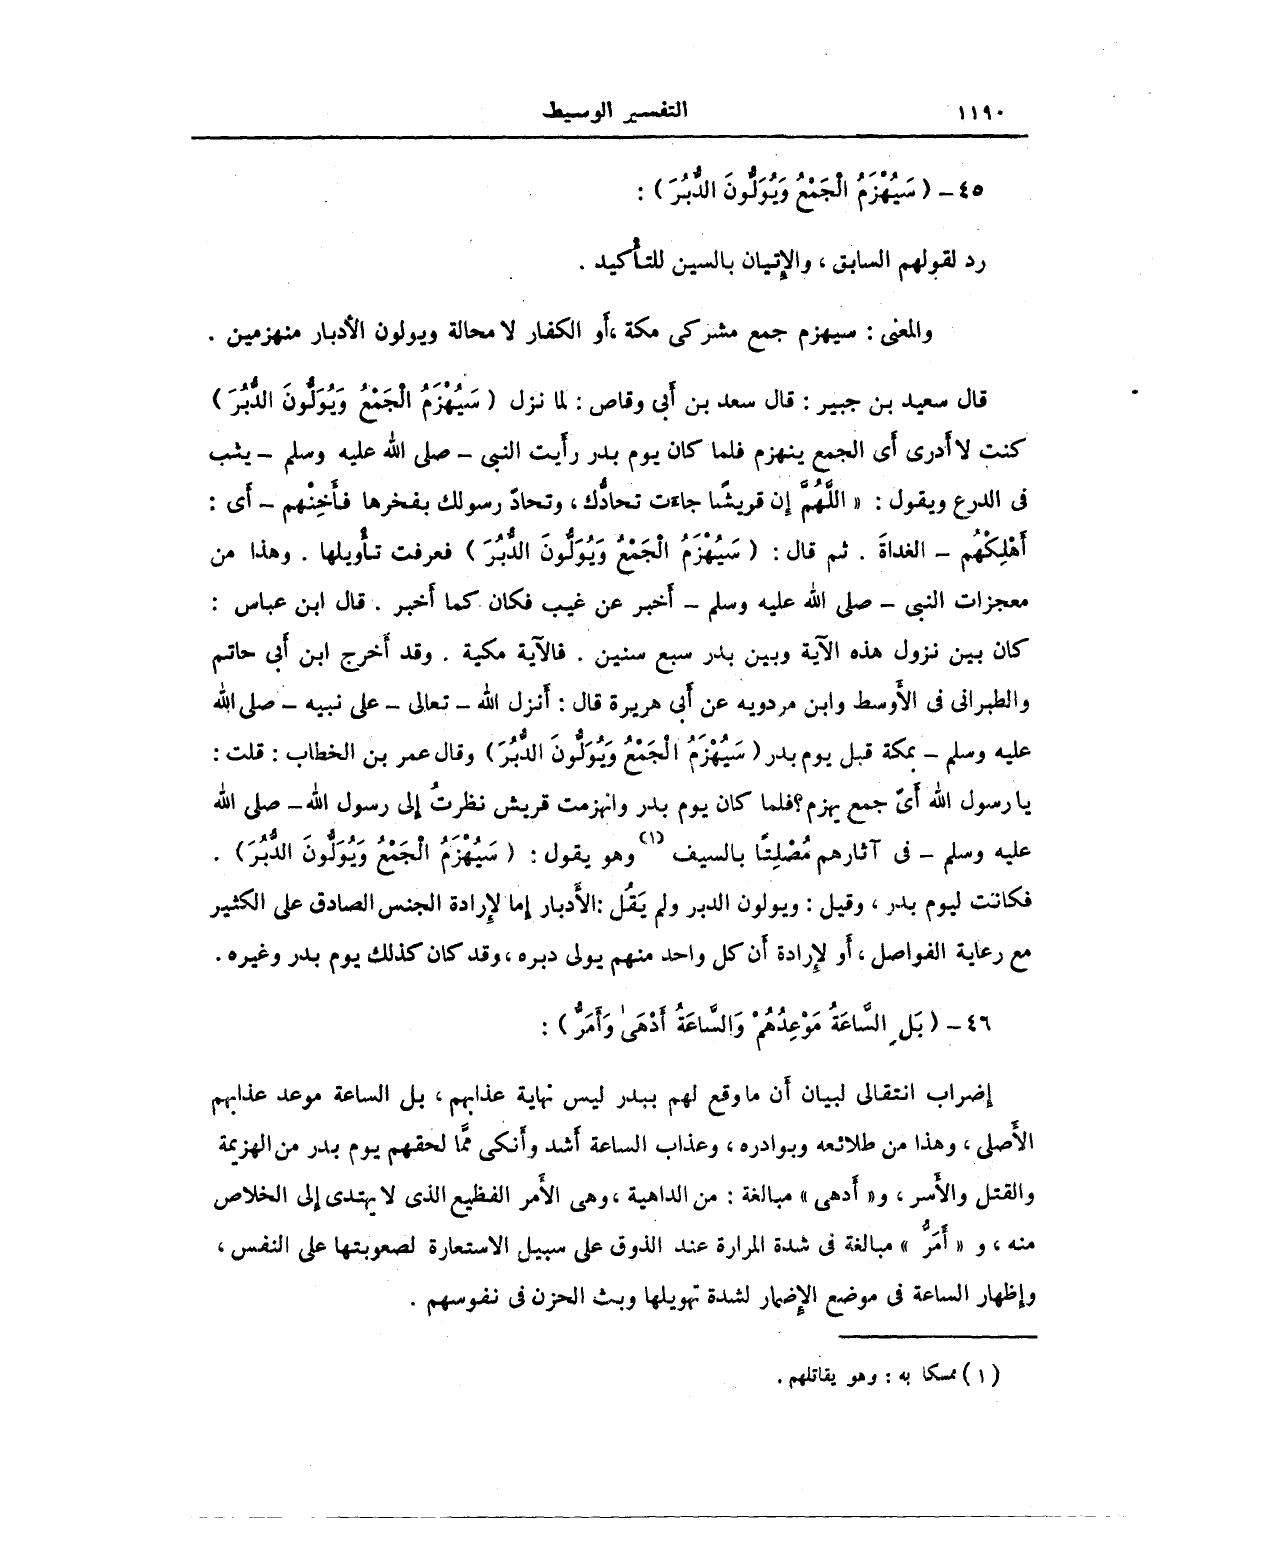 ١١٩٠ التفسير الوسيط
٤٥ – ( سَيُهْزَمُ الْجَمْعُ وَيُوَلُّونَ الدُّبُرَ ) :
رد لقولهم السابق ، والإتيان بالسين للتأكيد .
والمعنى : سيهزم جمع مشركى مكة ،أو الكفار لا محالة ويولون الأدبار منهزمين .
قال سعيد بن جبير : قال سعد بن أبى وقاص : لما نزل ( سَيُهْزَمُ الْجَمْعُ وَيُوَلُّونَ الدُّبُرَ )
كنت لا أدرى أى الجمع ينهزم فلما كان يوم بدر رأيت النبى – صلى الله عليه وسلم – يثب
فى الدرع ويقول : « اللَّهُمَّ إن قريشًا جاءت تحادُّك ، وتحادّ رسولك بفخرها فأَخِنْهم – أى :
أَهْلِكْهُم – الغداةَ . ثم قال : ( سَيُهْزَمُ الْجَمْعُ وَيُوَلُّونَ الدُّبُرَ ) فعرفت تأويلها . وهذا من
معجزات النبى – صلى الله عليه وسلم – أخبر عن غيب فكان كما أخبر . قال ابن عباس :
كان بين نزول هذه الآية وبين بدر سبع سنين . فالآية مكية . وقد أخرج ابن أبى حاتم
والطبرانى فى الأوسط وابن مردويه عن أبى هريرة قال : أنزل الله – تعالى – على نبيه – صلى الله
عليه وسلم – بمكة قبل يوم بدر ( سَيُهْزَمُ الْجَمْعُ وَيُوَلُّونَ الدُّبُرَ ) وقال عمر بن الخطاب : قلت :
يا رسول الله أىّ جمع يهزم؟فلما كان يوم بدر وانهزمت قريش نظرتُ إلى رسول الله– صلى الله
عليه وسلم – فى آثارهم مُصْلِتًا بالسيف (١) وهو يقول : ( سَيُهْزَمُ الْجَمْعُ وَيُوَلُّونَ الدُّبُرَ ) .
فكانت ليوم بدر ، وقيل : ويولون الدبر ولم يَقُل :الأَدبار إما لإرادة الجنس الصادق على الكثير
مع رعاية الفواصل ، أو لإرادة أن كل واحد منهم يولى دبره ،وقد كان كذلك يوم بدر وغيره .
٤٦ – ( بَلِ السَّاعَةُ مَوْعِدُهُمْ وَالسَّاعَةُ أَدْهَىٰ وَأَمَرُّ ) :
إضراب انتقالى لبيان أن ما وقع لهم ببدر ليس نهاية عذابهم ، بل الساعة موعد عذابهم
الأَصلى ، وهذا من طلائعه وبوادره ، وعذاب الساعة أشد وأنكى ممَّا لحقهم يوم بدر من الهزيمة
والقتل والأَسر ، و« أدهى » مبالغة : من الداهية ،وهى الأَمر الفظيع الذى لا يهتدى إلى الخلاص
منه ، و « أَمَرُّ » مبالغة فى شدة المرارة عند الذوق على سبيل الاستعارة لصعوبتها على النفس ،
وإظهار الساعة فى موضع الإضمار لشدة تهويلها وبث الحزن فى نفوسهم .
(١) ممسكا به : وهو يقاتلهم .